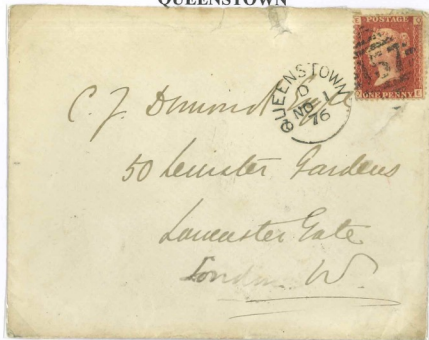 QUEENSTOWN
POSTAGE
57
ONE PENNY
QUEENSTOWN
D
NO 1
76
C. J. Dimond Esq
50 Leinster Gardens
Lancaster Gate
London W.